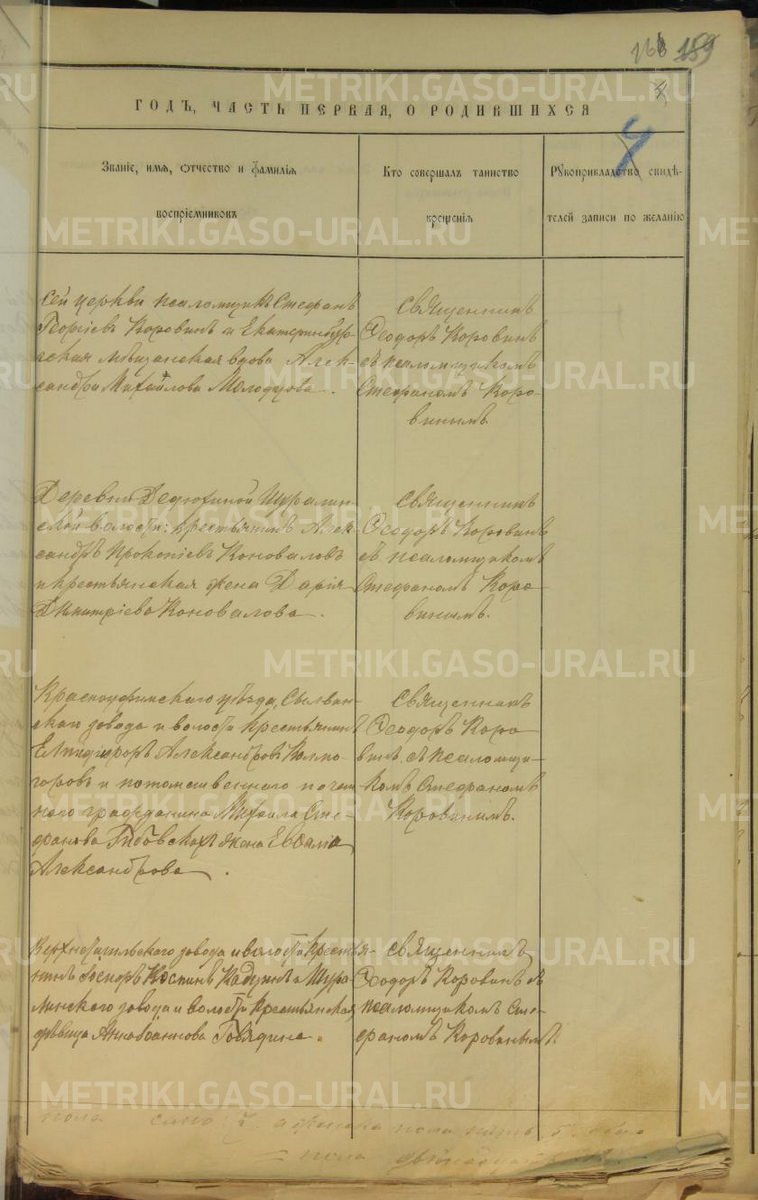 189
METRIKI.GASO-URAL.RU
ГОДЪ, ЧАСТЬ ПЕРВАЯ, О РОДИВШИХСЯ
Званіе, имя, отчество и фамилія
воспріемниковъ
Кто совершалъ таинство
крещенія
Рукоприкладство свидѣ-
телей записи по желанію
4
Сей церкви псаломщикъ Стефанъ
Георгіевъ Коровинъ и Екатеринбур-
гская мѣщанская вдова Алек-
сандра Михайлова Молодцова.
Священникъ
Ѳеодоръ Коровинъ
съ псаломщикомъ
Стефаномъ Коро-
винымъ
Деревни Дедюхиной Шуралин-
ской волости: крестьянинъ Алек-
сандръ Прокопіевъ Коноваловъ
и крестьянская жена Дарія
Димитріева Коновалова.
Священникъ
Ѳеодоръ Коровинъ
съ псаломщикомъ
Стефаномъ Коро-
винымъ.
Красноуфимскаго уѣзда, Сылвин-
скаго завода и волости крестьянинъ
Елпидифоръ Александровъ Колмо-
горовъ и потомственнаго почет
наго гражданина Михаила Сте-
фанова жена
Александрова.
Священникъ
Ѳеодоръ Коро-
винъ съ псаломщи-
комъ Стефаномъ
Коровинымъ.
Верхнетагильскаго завода и волости крестья-
нинъ и Шура-
линскаго завода и волости крестьянская
дѣвица Анна Іоаннова Говядина.
Священникъ
Ѳеодоръ Коровинъ съ
псаломщикомъ Сте-
фаномъ Коровинымъ.
пола
пола